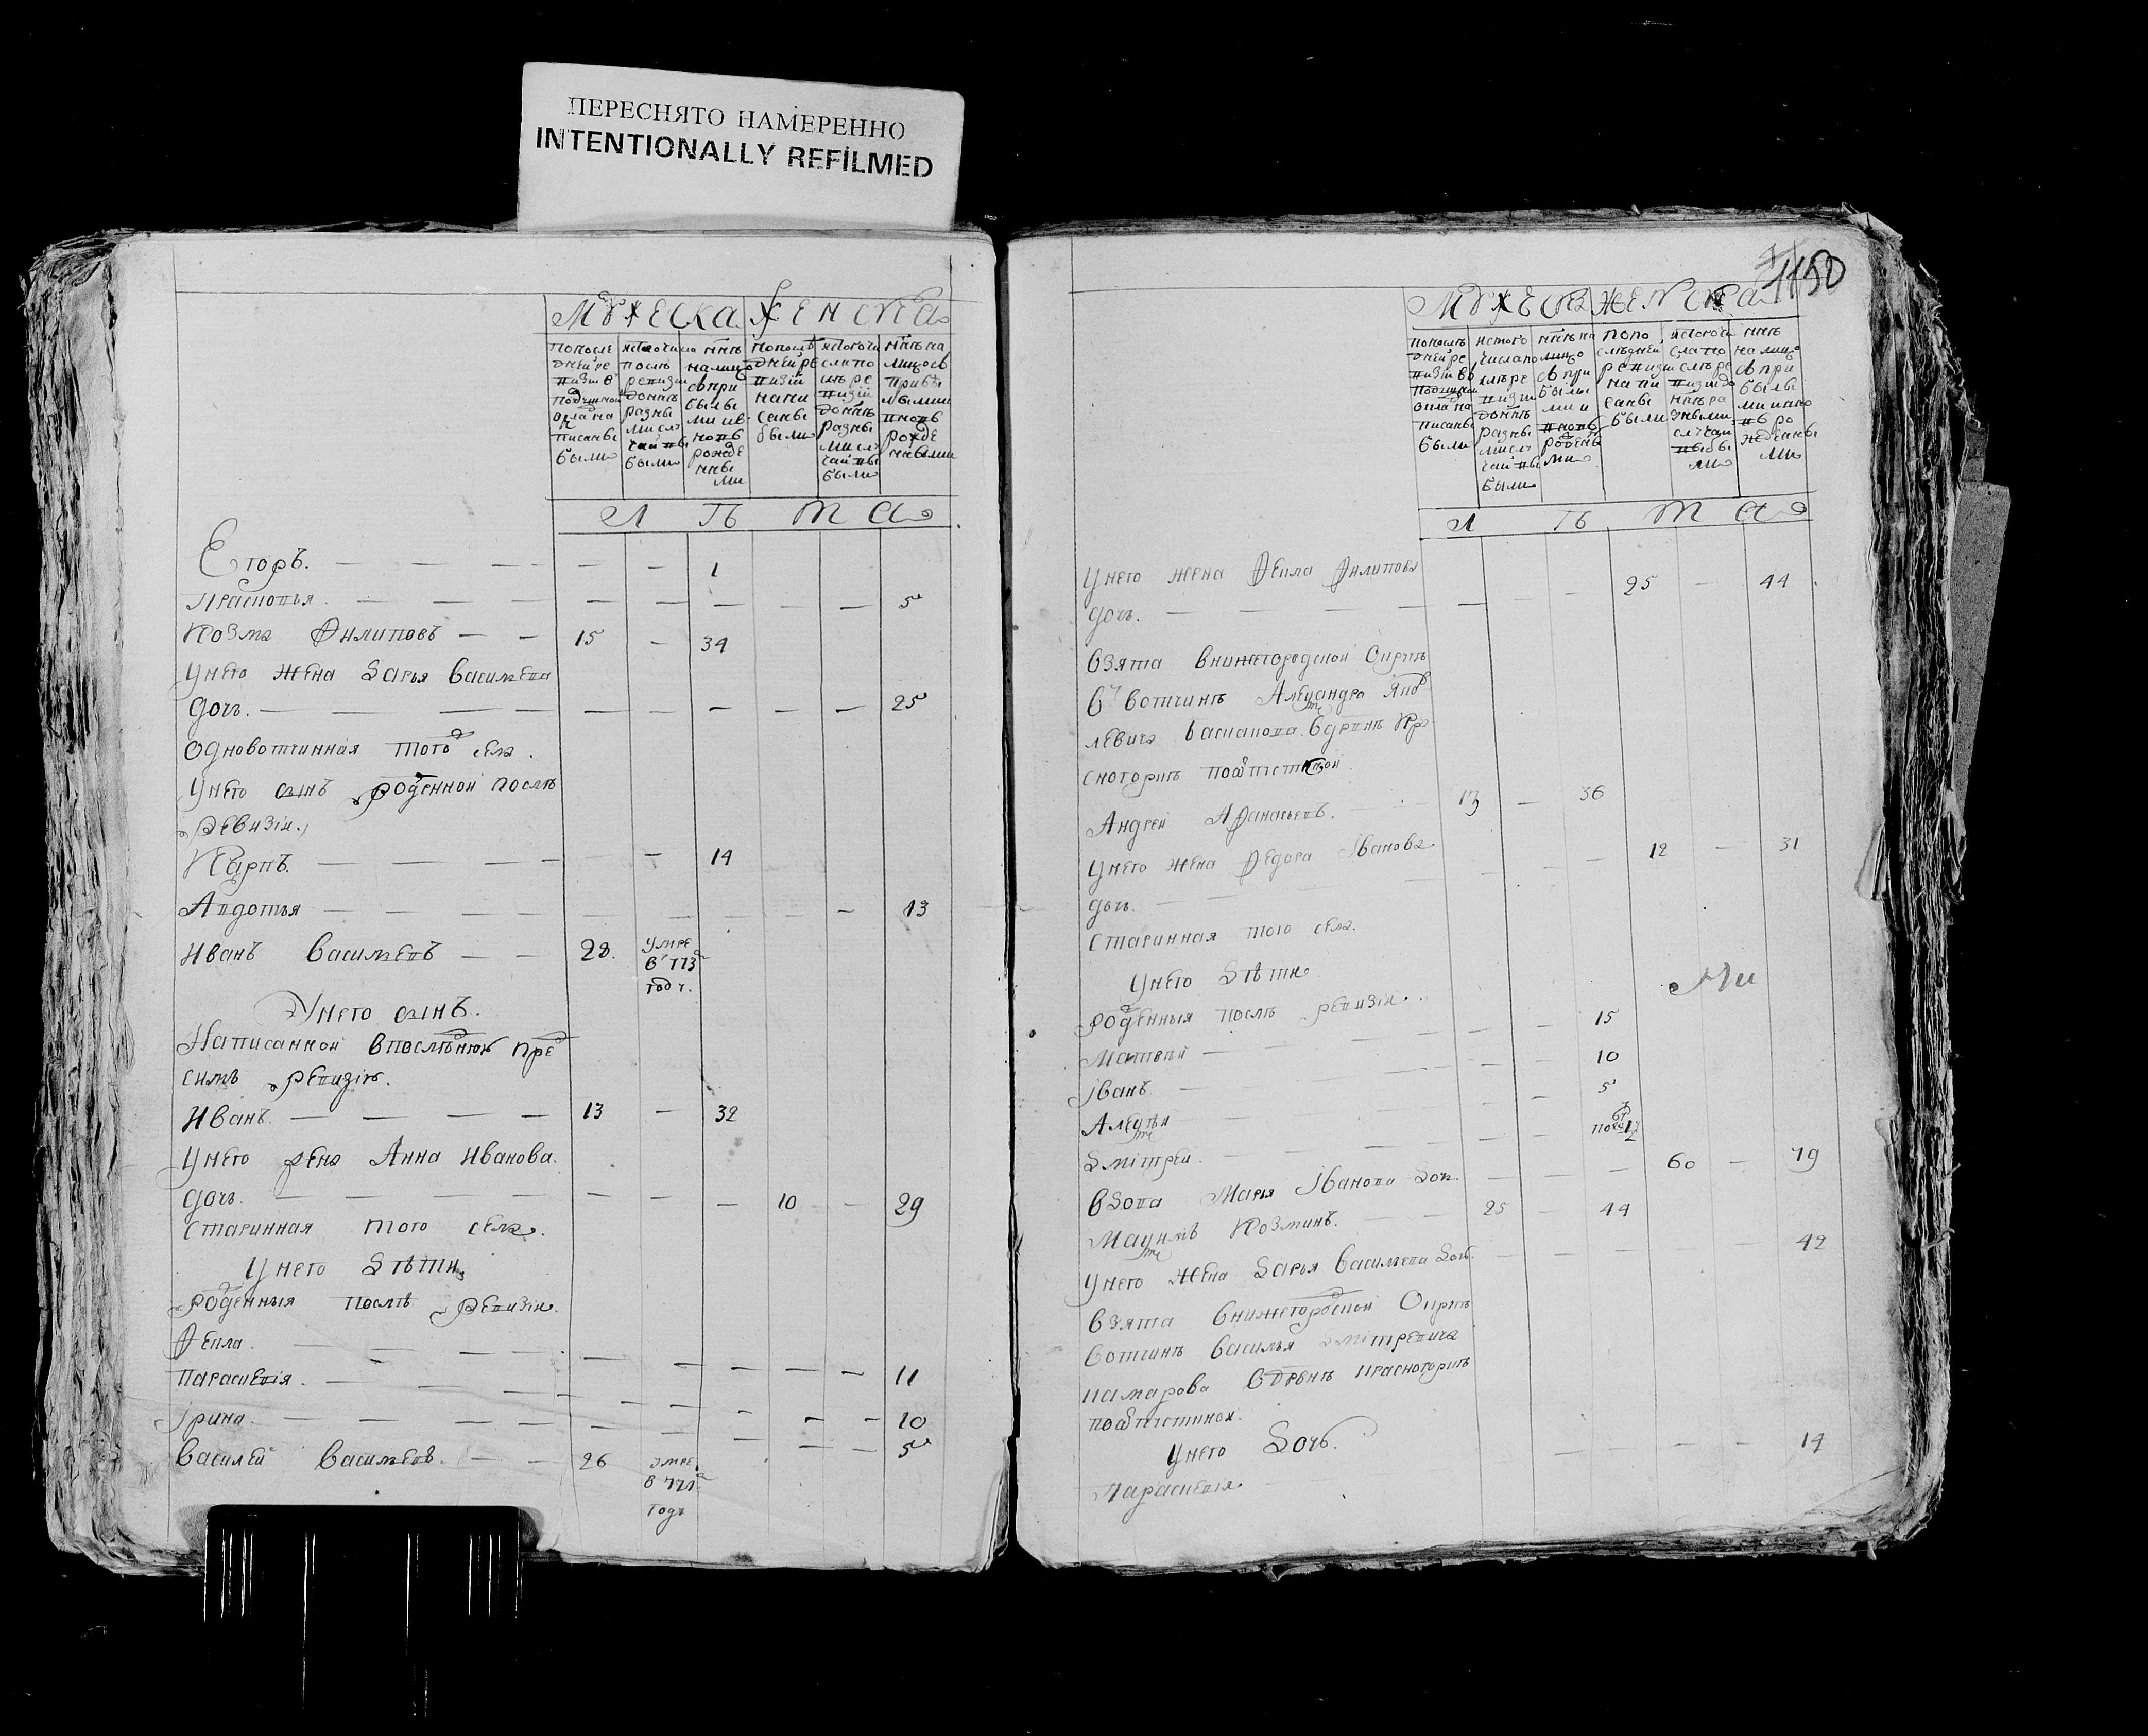 ПЕРЕСНЯТО НАМЕРЕННО
INTENTIONALLY REFILMED
МУЖЕСКА ЖЕНСКА
попосле
дней ре
визии в
подушной
окладна
писаны
были
после
ревизии
донне
разны
ми слу
чаи вы
были
ныне
налицо
спри
былы
ми и в
новь
рожде
нны
ми
попосле
дней ре
визии
напи
саны
были
ис того чи
сла по
сле ре
визии
донне
разны
ми слу
чаи вы
были
ныне на
лицо с
прибы
лыми
вновь
рожде
ными
Л Ѣ Т А
Егоръ. — — — — — 1
Прасковья. — — — — — — — — 5
Козма Филиповъ — — 15 — 34
Унего жена Дарья Василева
дочь. — — — — — — — — — 25
одновотчинная того села.
Унего сынъ рожденной после
ревизiи.
Карпъ. — — — — — 14
Авдотья — — — — — — — — 13
Иванъ Василевъ — — 28. умре
в 773
году.
Унего сынъ.
Написанной впоследнюю пре
симъ ревизiю.
Иванъ. — — — — 13 — 32
Унего жена Анна Иванова.
дочь. — — — — — — — 10 — 29
старинная того села.
Унего Дѣти
рожденныя послѣ ревизiи.
Фекла — — — — — — — — — 11
Параскевiя. — — — — — — — — 10
Iрина. — — — — — — — — 5
Василей Василевъ. — — 26 умре
в 771
году
1150
МУЖЕСКА ЖЕНСКА
попослѣ
дней ре
визiи во
подушной
окла на
писаны
были
истого
числапо
слѣ ре
визiи
донне
разны
ми слу
чаи вы
были
ныне на
лицо
с при
былы
ми и
вновь
рожены
ми
попо
слѣдней
ревизiи
напи
саны
были
истогочи
сла по
слѣ ре
визiи до
нне ра
зными
случаи
выбы
ли
ныне
на лицо
с при
былы
ми и вно
вь ро
жденны
ми
Л Ѣ Т А
Унего жена Фекла Филипова 25 — 44
дочь. — — — — — — —
Взята внижегородской округе
в вотчинѣ Александра Яков
левича Васкакова вдрвнѣ Кра
сногоркѣ
Андрей Афанасьевъ. — — 17 — 36
Унего жена Федора Iванова — 12 — 31
дочь. — — — —
старинная того села.
Унего Дѣти
рожденныя послѣ ревизiи.
Матвей — — — — — 15
Iванъ. — — — — — 10
Алексѣй — — — — — 5
Дмiтрей. — — — — — пол
Вдова Марья Iванова Дочь. — — — 60 — 79
Максимъ Козминъ. — — 25 — 44
Унего жена Дарья Василева Дочь. — — — — — 42
Взята внижегородской Округе
вотчинѣ Василья Дмiтревича
вдрвнѣ красногоркѣ
Унего Дочь.
Параскевiя — — — — — 14